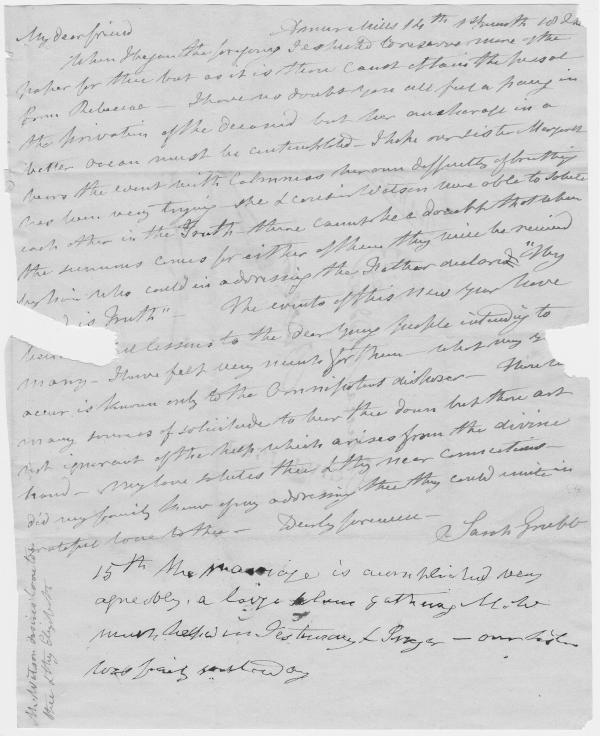 My dear friend Anner Mills 14th 1st month 182
When I began the foregoing I expected to reserve more of the
paper for thee but as it is thou canst obtain the perusal
from Rebecca — I have no doubt you all feel a pang in
the privation of the deceased but her anchorage in a
better ocean must be contemplated — I hope our sister Margaret
bears the event with calmness her own difficulty of breathing
has been very trying she & cousin Watson were able to salute
each other in the Truth — there cannot be a doubt that when
the summons comes for either of them they will be received
by him who could in addressing the Father declare "Thy
is Truth" — The events of this new year have
lessons to the dear young people intending to
many — I have felt very much for them — what may
occur is known only to the Omnipotent disposer — There are
many sources of solicitude to bear thee down but thou art
not ignorant of the help which arises from the divine
hand — My love salutes thee & thy near connections —
did my family know of my addressing thee they could unite in
grateful love to thee — Dearly farewell —
Sarah Grubb
15th the marriage is accomplished very
agreeably, a large gathering
much helped in Testimony & Prayer — our
was
M. Watson desires love to
thee & thy Elizabeth